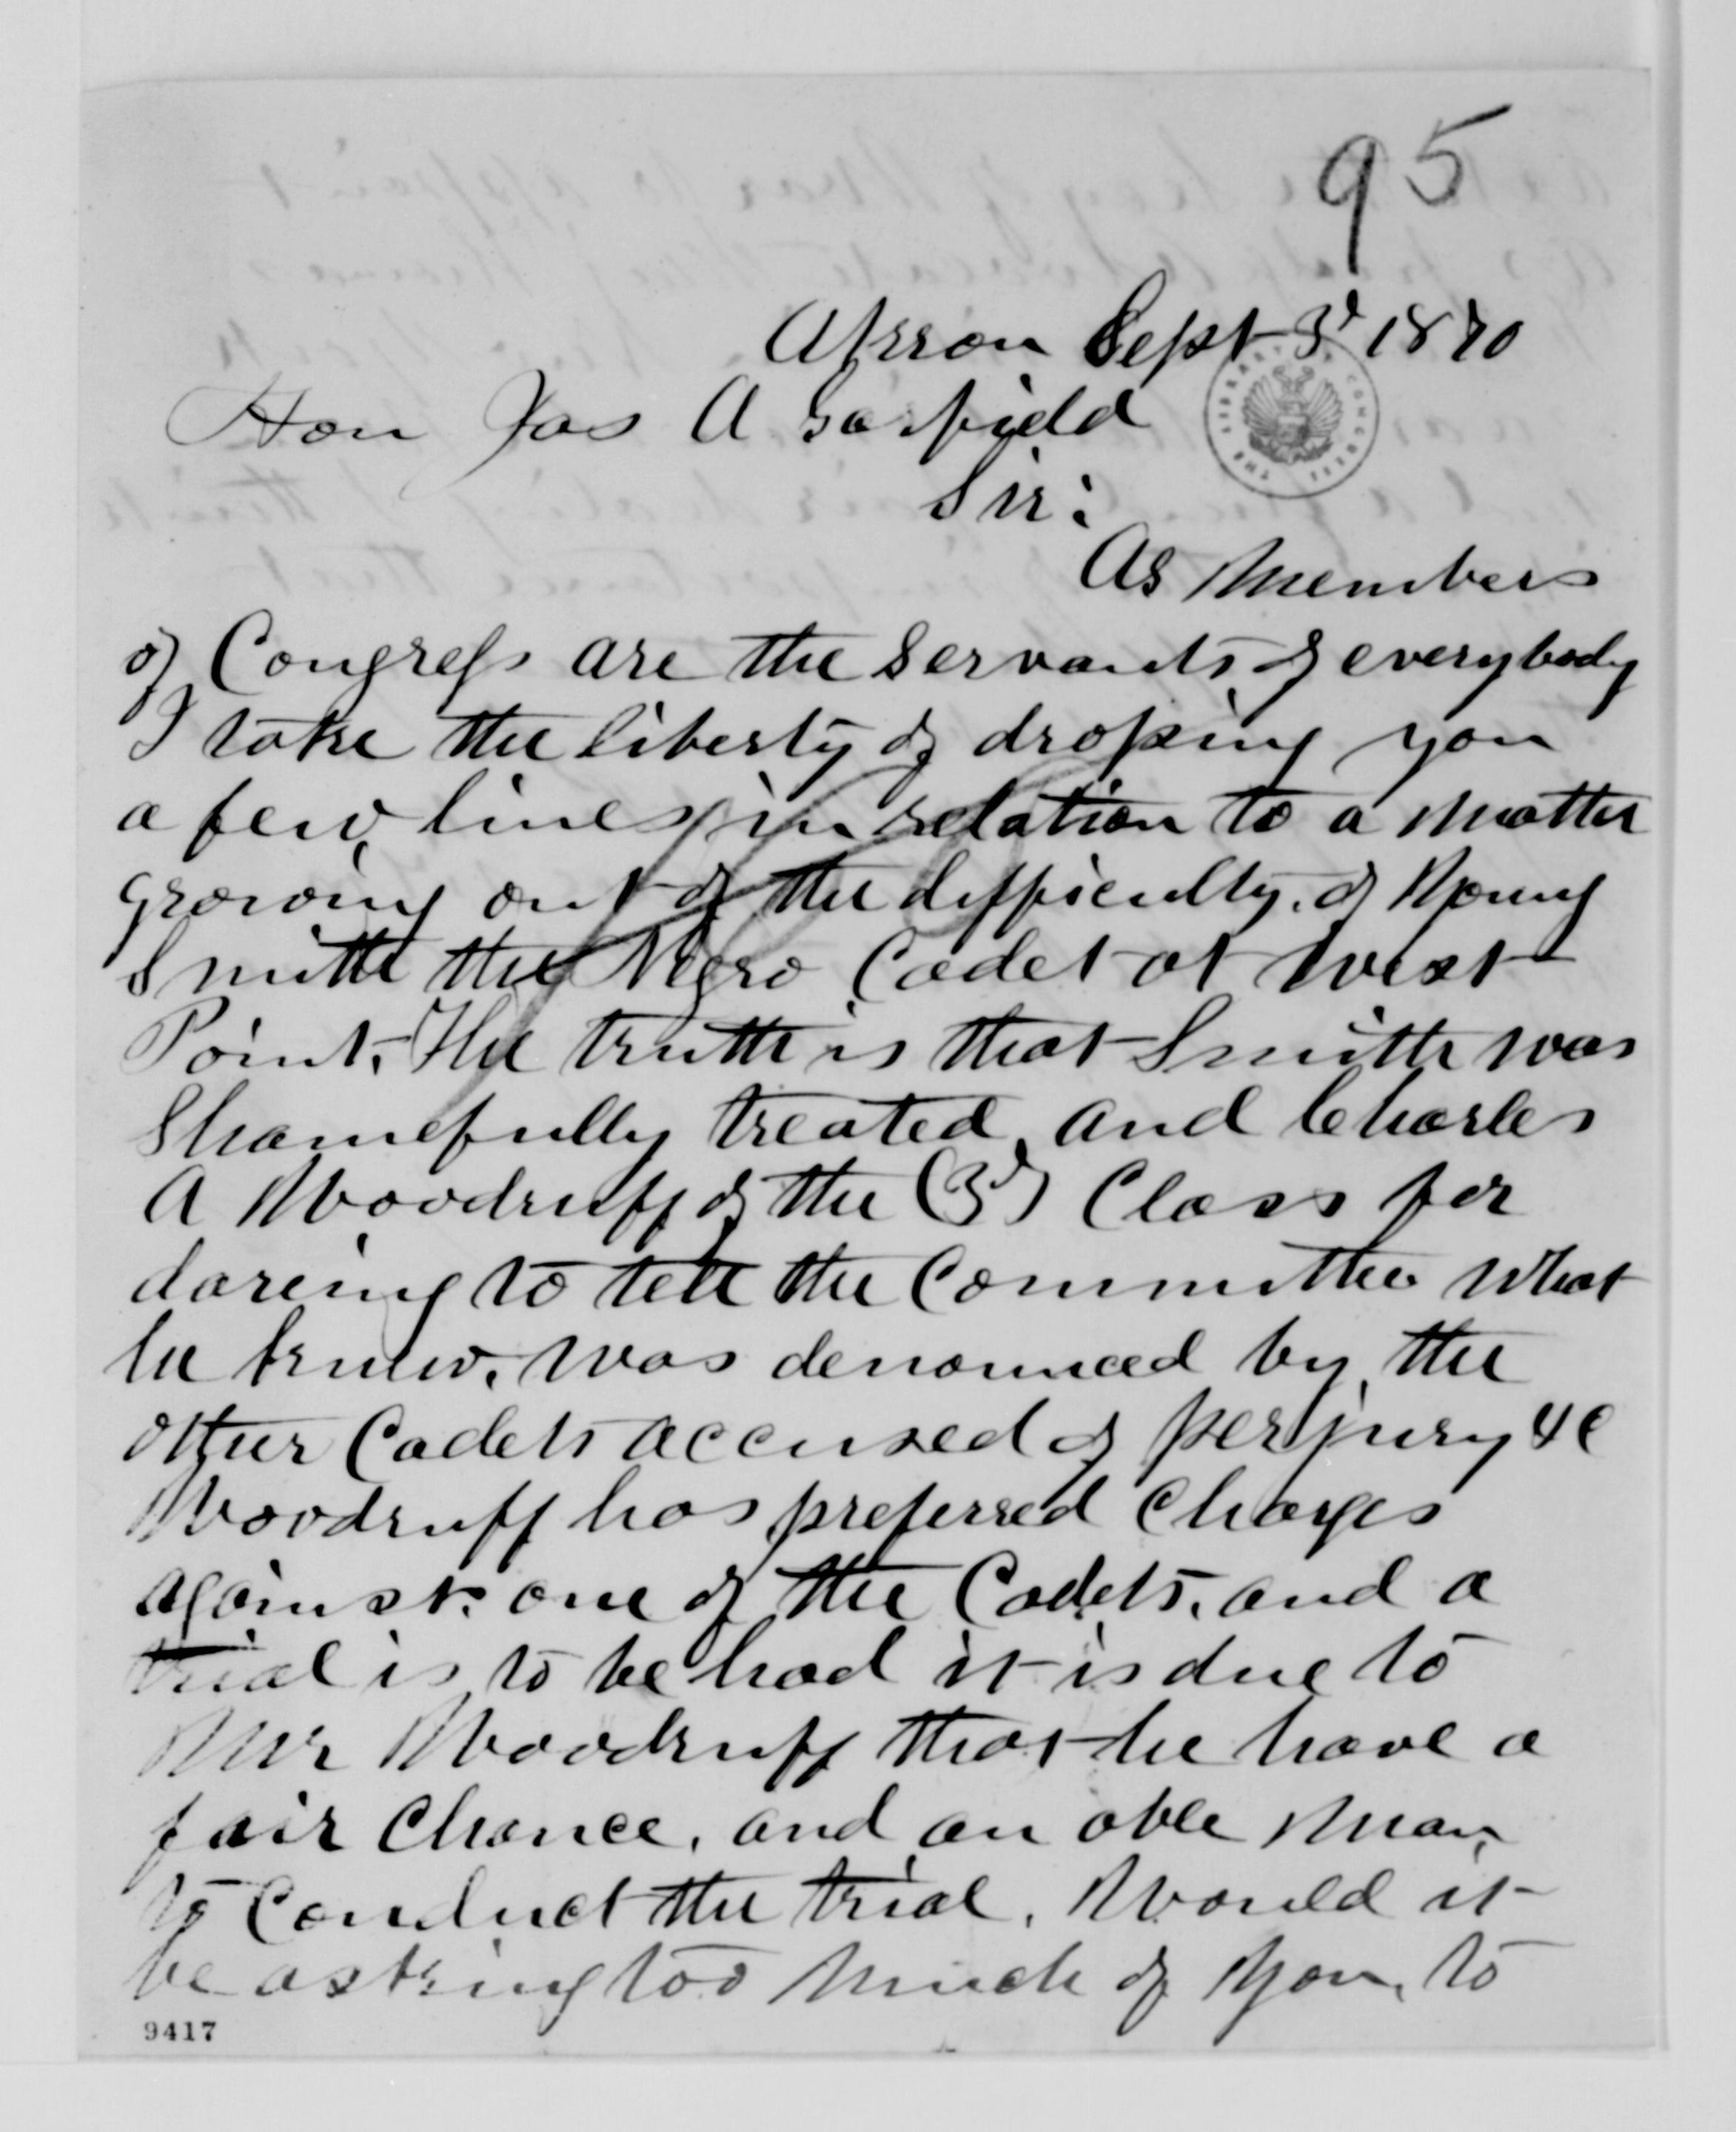 95
Akron Sept 3d 1870
Hon Jas A Garfield
Sir:
As Members
of Congress are the servants of everybody
I take the liberty of droping you
a few lines in relation to a matter
growing out of the difficulty of Young
Smith the Negro Cadet at West
Point. The truth is that Smith was
Shamefully treated, and Charles
A Woodruff of the (3d) Class for
dareing to tell the Committee what
he knew, was denounced by the
other Cadets accused of perjury &c
Woodruff has preferred Charges
against one of the Cadets, and a
trial is to be had it is due to
Mr Woodruff that he have a
fair Chance, and an able man,
to Conduct the trial. Would it
be asking too much of you, to
9417
THE LIBRARY OF CONGRESS